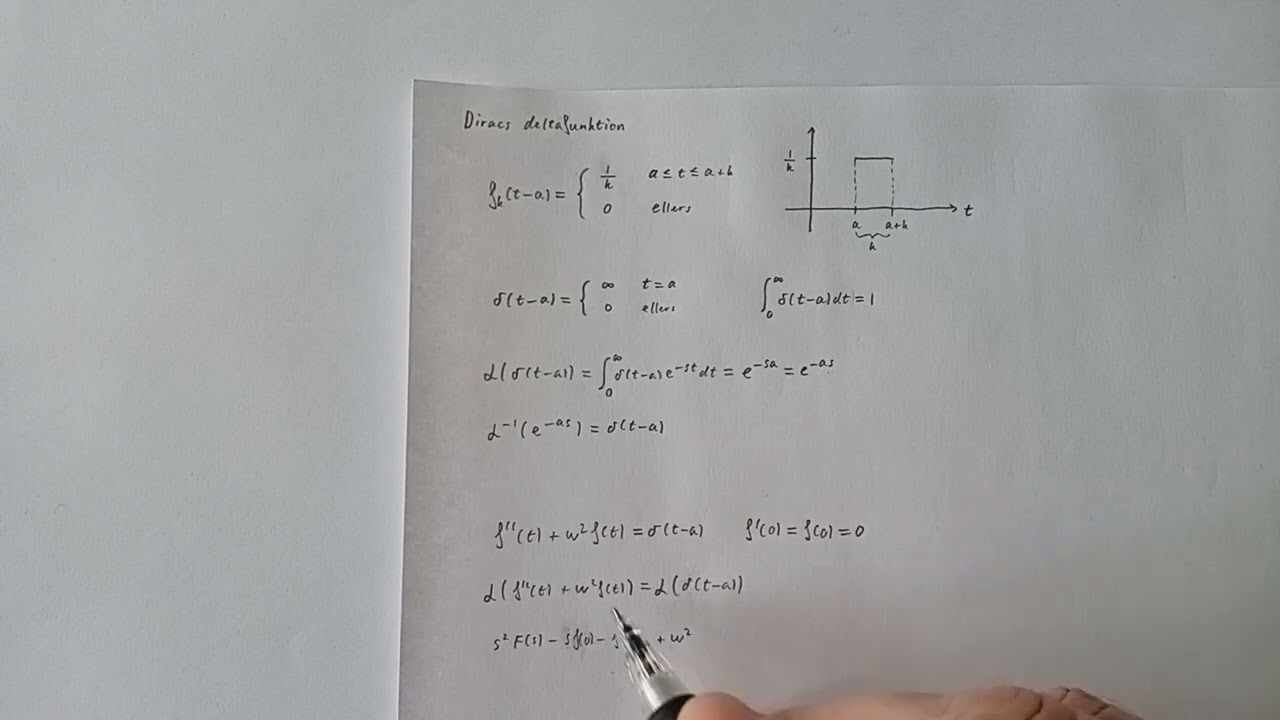 Diracs deltafunktion
fₖ(t-a) = { 1/k a ≤ t ≤ a+k
0 ellers
1/k
t
a a+k
k
δ(t-a) = { ∞ t = a
0 ellers
∫₀^∞ δ(t-a) dt = 1
ℒ(δ(t-a)) = ∫₀^∞ δ(t-a) e^{-st} dt = e^{-sa} = e^{-as}
ℒ⁻¹(e^{-as}) = δ(t-a)
f''(t) + w² f(t) = δ(t-a) f'(0) = f(0) = 0
ℒ(f''(t) + w² f(t)) = ℒ(δ(t-a))
s² F(s) - s f(0) - + w²